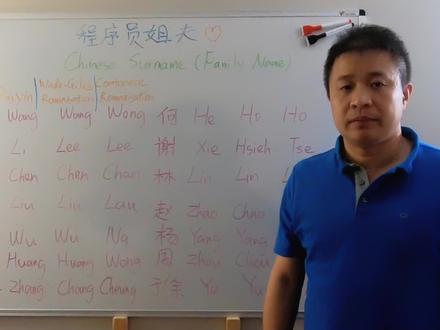 程序员姐夫
Chinese Surname (Family Name)
Pinyin Wade-Giles Cantonese
Romanization Romanization
Wang Wang Wong 何 He Ho Ho
Li Lee Lee 謝 Xie Hsieh Tse
Chen Chen Chan 林 Lin Lin
Liu Liu Lau 赵 Zhao Chao
Wu Wu Ng 杨 Yang Yang
Huang Huang Wong 周 Zhou Chou
Zhang Chang Cheung Yu Yu